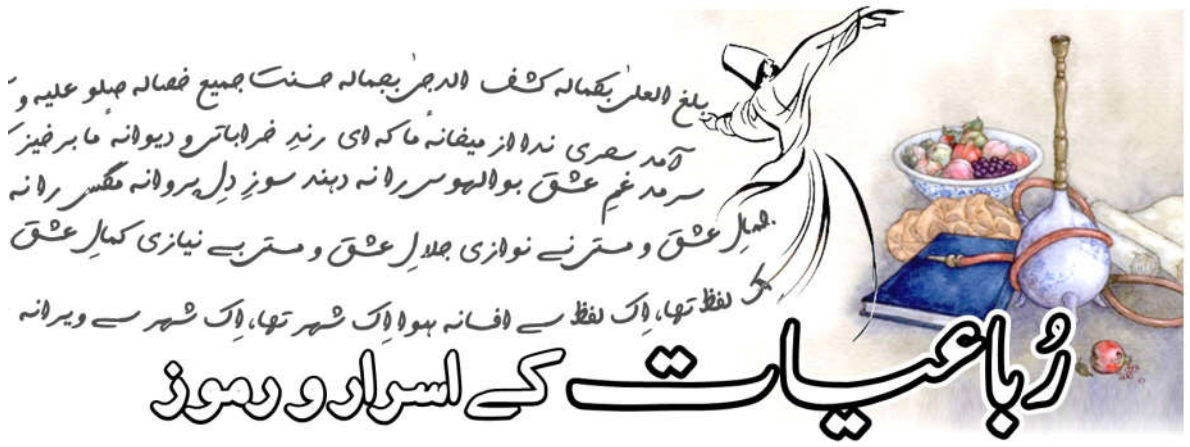 بلغ العلیٰ بکمالہ کشف الدجیٰ بجمالہ حسنت جمیع خصالہ صلو علیہ و
آمد سحری ندا از میخانۂ ما کہ ای رندِ خراباتی و دیوانۂ ما بر خیز
سرمد غمِ عشق بوالہوس را نہ دہند سوزِ دِل پروانہ مگس را نہ
جمالِ عشق و مستی نے نوازی جلالِ عشق و مستی بے نیازی کمالِ عشق
اِک لفظ تھا، اِک لفظ سے افسانہ ہوا اِک شہر تھا، اِک شہر سے ویرانہ
رُباعیات کے اسرار و رموز